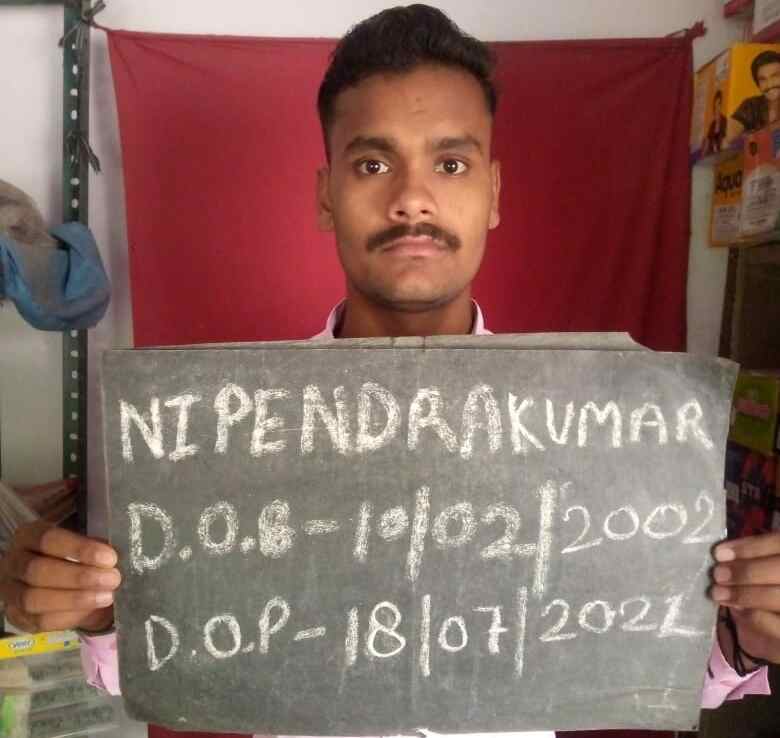 NIPENDRAKUMAR
D.O.B-10/02/2002
D.O.P-18/07/2021
Aqua